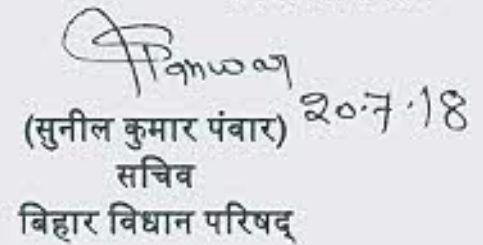 Panwar
20.7.18
(सुनील कुमार पंवार)
सचिव
बिहार विधान परिषद्